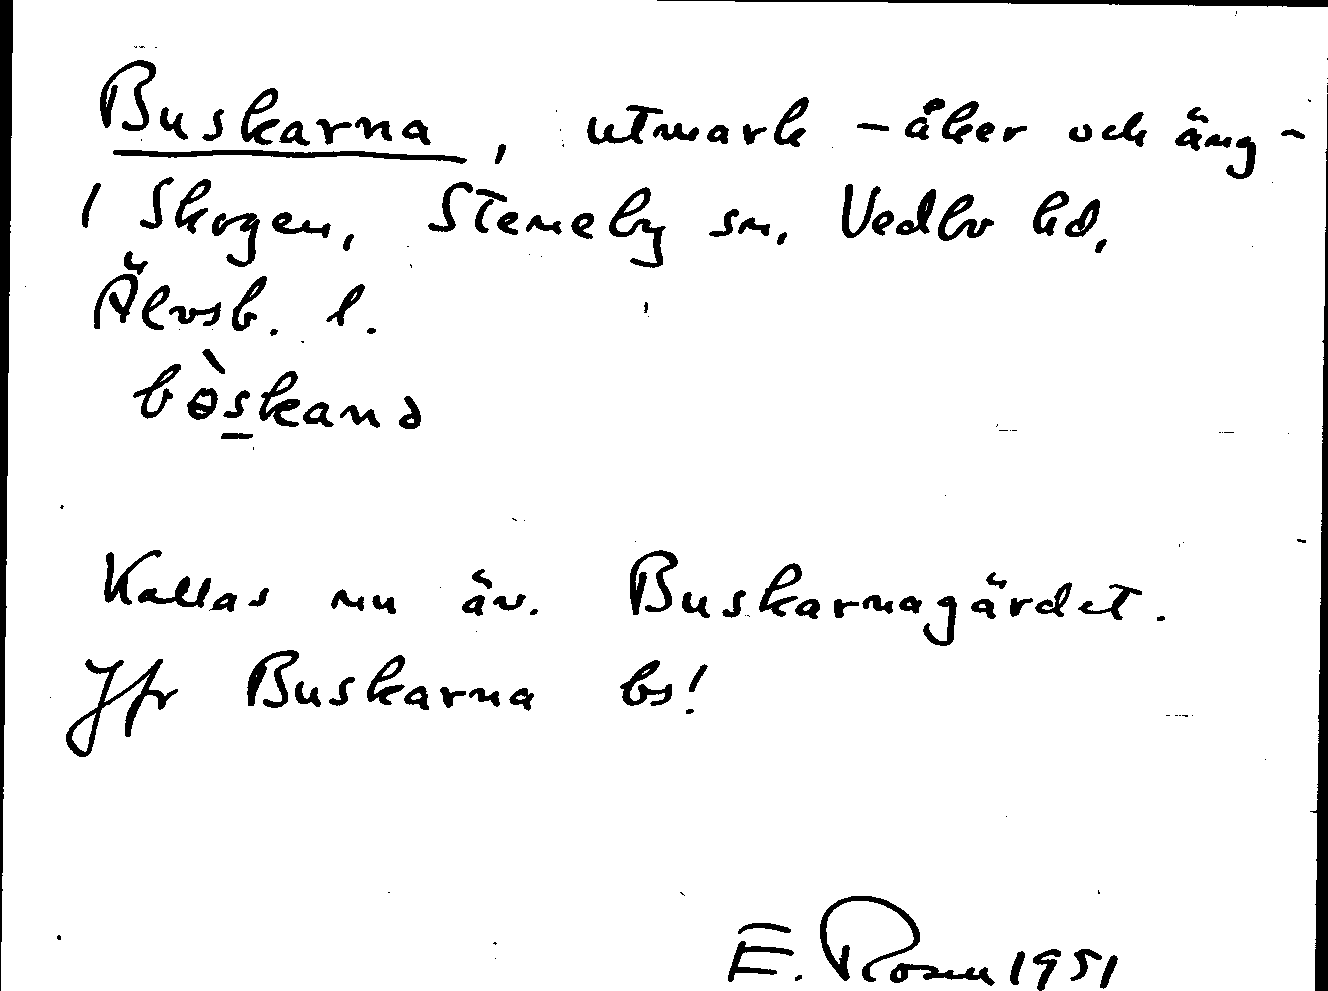 Buskarna, utmark - åker och äng -
i Skogen, Steneby sn, Vedbo hd,
Älvsb. l.
bòskanə
Kallas nu äv. Buskarnagärdet.
Jfr Buskarna bs!
E. Rosen 1951